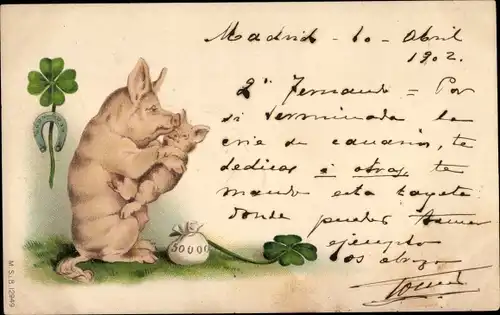 Madrid - 10 - Abril
1902.
Dn Fernando = Por
si terminada la
cria de canarios, te
dedicas á otras te
mando esta tarjeta
donde puedes tomar
ejemplo
os abraza
50000
M.S.i.B. 12949